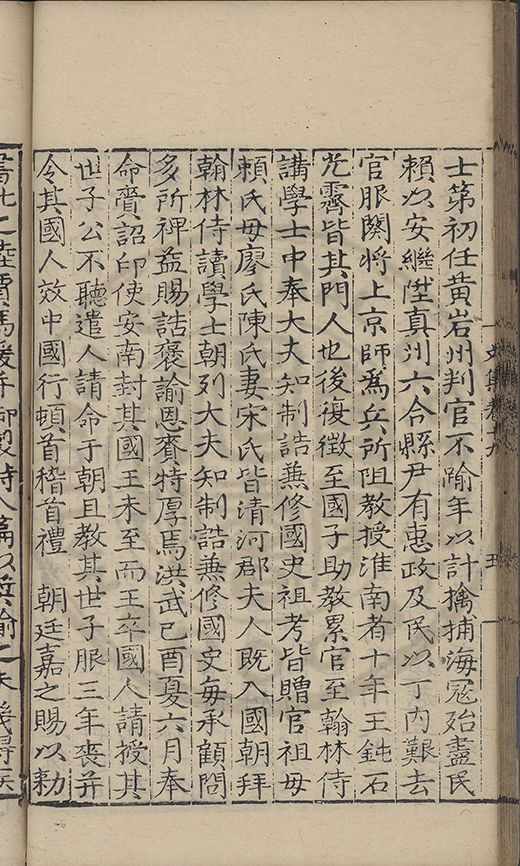 士第初任黄岩州判官不踰年以計擒捕海冦殆盡民
賴以安繼陞真州六合縣尹有惠政及民以丁内艱去
官服闋將上京師爲兵所阻教授淮南者十年王鈍石
光霽皆其門人也後復徵至國子助教累官至翰林侍
講學士中奉大夫知制誥兼修國史祖考皆贈官祖母
賴氏母廖氏陳氏妻宋氏皆清河郡夫人既入國朝拜
翰林侍讀學士朝列大夫知制誥兼修國史每承顧問
多所裨益賜誥褒諭恩賚特厚焉洪武己酉夏六月奉
命賫詔印使安南封其國王未至而王卒國人請授其
世子公不聽遣人請命于朝且教其世子服三年喪并
令其國人效中國行頓首稽首禮　朝廷嘉之賜以勅
書比之陸賈馬援并御製詩八篇以奬諭之未幾得疾